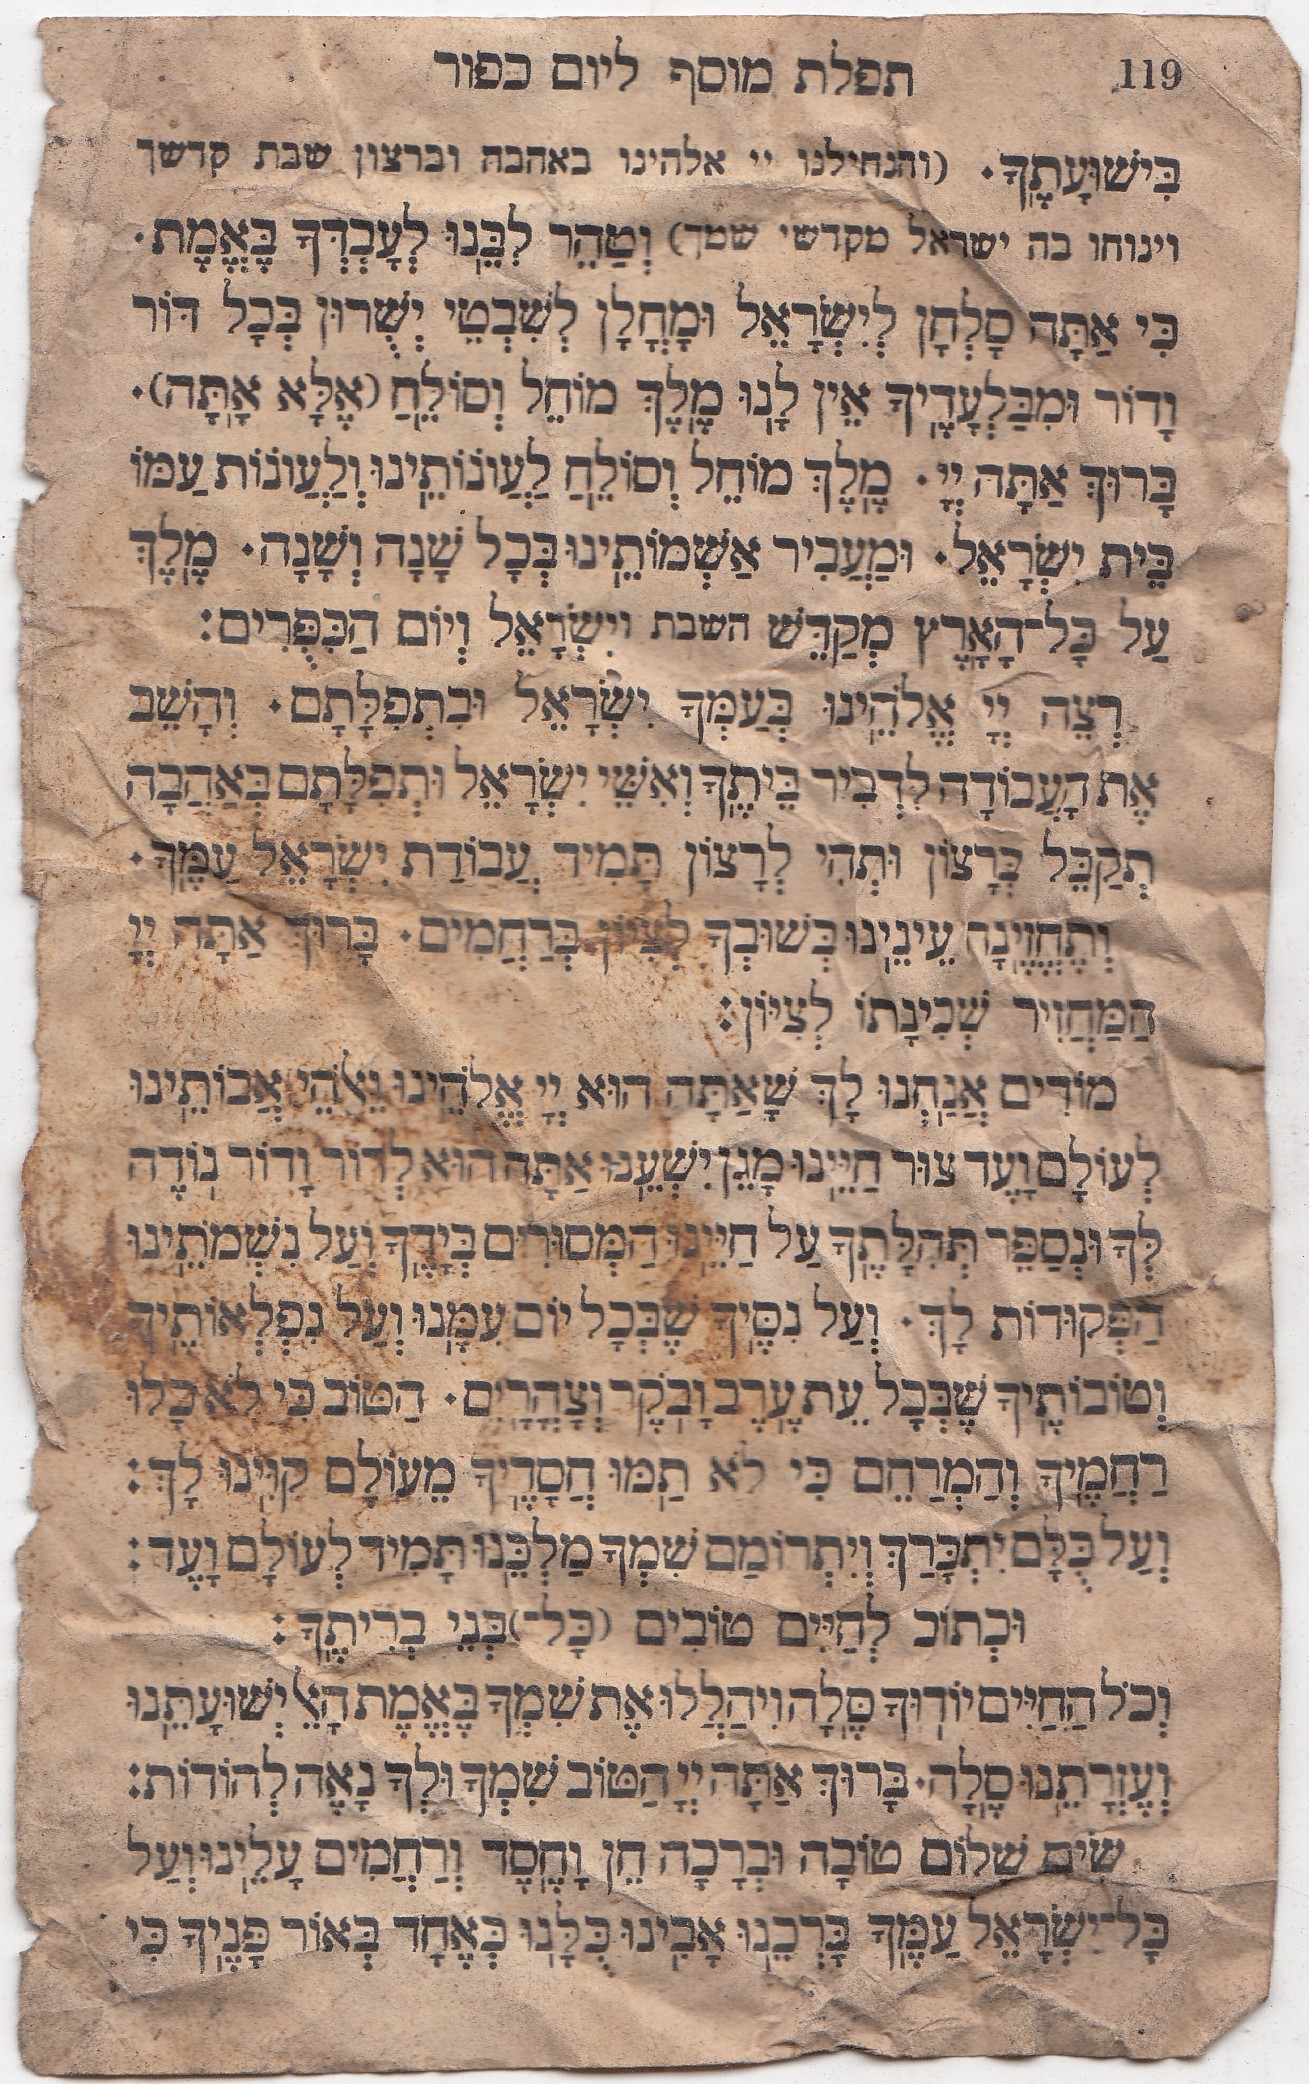 119 תפלת מוסף ליום כפור
בִּישׁוּעָתֶֽךָ. (והנחילנו יי אלהינו באהבה וברצון שבת קדשך
וינוחו בה ישראל מקדשי שמך) וְטַהֵר לִבֵּֽנוּ לְעָבְדְּךָ בֶּאֱמֶת.
כִּי אַתָּה סָלְחָן לְיִשְׂרָאֵל וּמָחֳלָן לְשִׁבְטֵי יְשֻׁרוּן בְּכָל דּוֹר
וָדוֹר וּמִבַּלְעָדֶֽיךָ אֵין לָֽנוּ מֶֽלֶךְ מוֹחֵל וְסוֹלֵֽחַ (אֶלָּא אָֽתָּה).
בָּרוּךְ אַתָּה יְיָ. מֶֽלֶךְ מוֹחֵל וְסוֹלֵֽחַ לַעֲוֹנוֹתֵֽינוּ וְלַעֲוֹנוֹת עַמּוֹ
בֵּית יִשְׂרָאֵל. וּמַעֲבִיר אַשְׁמוֹתֵֽינוּ בְּכָל שָׁנָה וְשָׁנָה. מֶֽלֶךְ
עַל כָּל־הָאָֽרֶץ מְקַדֵּשׁ השבת וְיִשְׂרָאֵל וְיוֹם הַכִּפֻּרִים:
רְצֵה יְיָ אֱלֹהֵֽינוּ בְּעַמְּךָ יִשְׂרָאֵל וּבִתְפִלָּתָם. וְהָשֵׁב
אֶת הָעֲבוֹדָה לִדְבִיר בֵּיתֶֽךָ וְאִשֵּׁי יִשְׂרָאֵל וּתְפִלָּתָם בְּאַהֲבָה
תְקַבֵּל בְּרָצוֹן וּתְהִי לְרָצוֹן תָּמִיד עֲבוֹדַת יִשְׂרָאֵל עַמֶּֽךָ.
וְתֶחֱזֶֽינָה עֵינֵֽינוּ בְּשׁוּבְךָ לְצִיּוֹן בְּרַחֲמִים. בָּרוּךְ אַתָּה יְיָ
הַמַּחֲזִיר שְׁכִינָתוֹ לְצִיּוֹן:
מוֹדִים אֲנַֽחְנוּ לָךְ שָׁאַתָּה הוּא יְיָ אֱלֹהֵֽינוּ וֵאלֹהֵי אֲבוֹתֵֽינוּ
לְעוֹלָם וָעֶד צוּר חַיֵּֽינוּ מָגֵן יִשְׁעֵֽנוּ אַתָּה הוּא לְדוֹר וָדוֹר נֽוֹדֶה
לְּךָ וּנְסַפֵּר תְּהִלָּתֶֽךָ עַל חַיֵּֽינוּ הַמְּסוּרִים בְּיָדֶֽךָ וְעַל נִשְׁמֹתֵֽינוּ
הַפְּקוּדוֹת לָךְ. וְעַל נִסֶּֽיךָ שֶׁבְּכָל יוֹם עִמָּֽנוּ וְעַל נִפְלְאוֹתֶֽיךָ
וְטוֹבוֹתֶֽיךָ שֶׁבְּכָל עֵת עֶֽרֶב וָבֹֽקֶר וְצָהֳרָֽיִם. הַטּוֹב כִּי לֹא כָלוּ
רַחֲמֶֽיךָ וְהַמְרַחֵם כִּי לֹא תַֽמּוּ חֲסָדֶֽיךָ מֵעוֹלָם קִוִּֽינוּ לָךְ:
וְעַל כֻּלָּם יִתְבָּרַךְ וְיִתְרוֹמַם שִׁמְךָ מַלְכֵּֽנוּ תָּמִיד לְעוֹלָם וָעֶד:
וּכְתוֹב לְחַיִּים טוֹבִים (כָּל־)בְּנֵי בְרִיתֶֽךָ:
וְכֹל הַחַיִּים יוֹדֽוּךָ סֶּֽלָה וִיהַלֲלוּ אֶת שִׁמְךָ בֶּאֱמֶת הָאֵל יְשׁוּעָתֵֽנוּ
וְעֶזְרָתֵֽנוּ סֶֽלָה. בָּרוּךְ אַתָּה יְיָ הַטּוֹב שִׁמְךָ וּלְךָ נָאֶה לְהוֹדוֹת:
שִׂים שָׁלוֹם טוֹבָה וּבְרָכָה חֵן וָחֶֽסֶד וְרַחֲמִים עָלֵֽינוּ וְעַל
כָּל־יִשְׂרָאֵל עַמֶּֽךָ בָּרְכֵֽנוּ אָבִֽינוּ כֻּלָּֽנוּ כְּאֶחָד בְּאוֹר פָּנֶֽיךָ כִּי